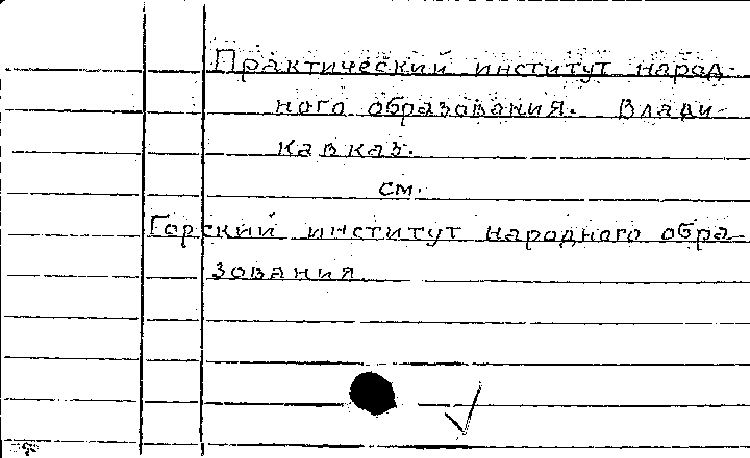 Практический институт народ-
ного образования. Влади-
кавказ.
см.
Горский институт народного обра-
зования.